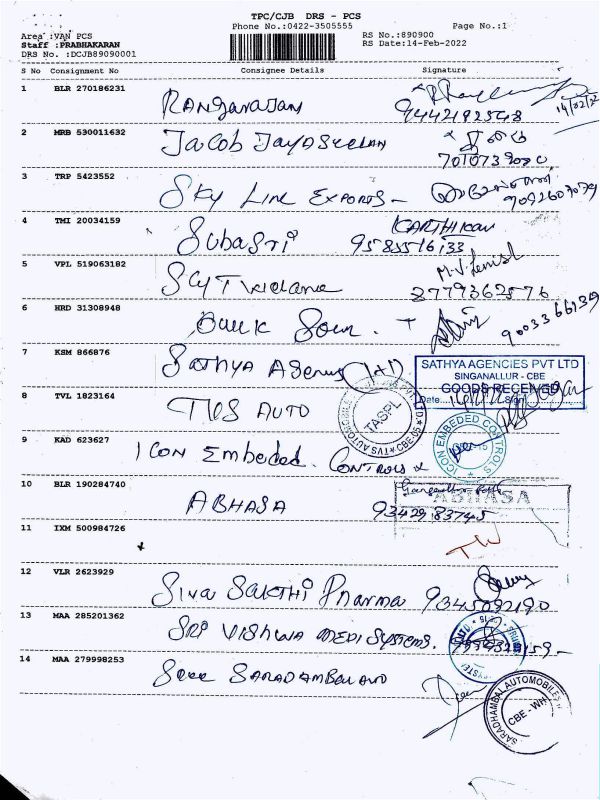 TPC/CJB DRS - PCS
Phone No.:0422-3505555 Page No.:1
Area :VAN PCS RS No.:890900
Staff :PRABHAKARAN RS Date:14-Feb-2022
DRS No. :DCJB89090001
S No Consignment No Consignee Details Signature
1 BLR 270186231
Rangarajan 9442182548
14/02/2
2 MRB 530011632
Jacob Jayaseelan
3 TRP 5423552
Sky Line Exports - 9092607079
4 TMI 20034159 KARTHIKAN
Subasti 9585516133
5 VPL 519063182
8779362576
6 HRD 31308948
9003366139
7 KSM 866876
Sathya Agencies
SATHYA AGENCIES PVT LTD
SINGANALLUR - CBE
GOODS RECEIVED
Date... Sign
8 TVL 1823164
TVS AUTO
TASPL
CBE-05
9 KAD 623627
Icon Embeded Controls
ICON EMBEDED CONTROLS
10 BLR 190284740
ABHASA
ABHASA
9342983745
11 IXM 500984726
TW
12 VLR 2623929
Siva Sakthi Pharma 9345092190
13 MAA 285201362
Sri Vishwa Medi Systems.
14 MAA 279998253
Sree Saradambal Auto
SARADHAMBAL AUTOMOBILES
CBE-WH